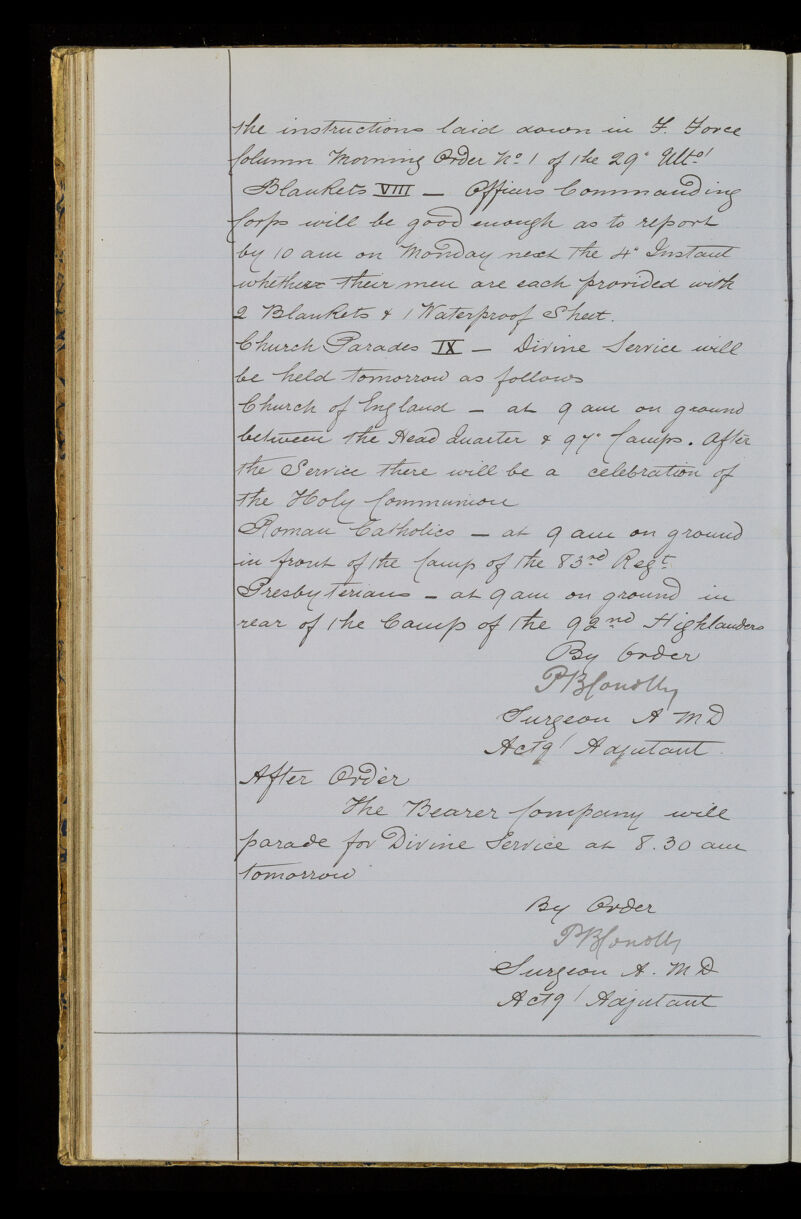 the instructions laid down in F. Force
Column Morning Order No 1 of the 29th Ulto
Blankets VIII — Officers Commanding
Corps will be good enough as to report
by 10 am on Monday next the 4th Instant
whether their men are each provided with
2 Blankets & 1 Waterproof Sheet.
Church Parades IX — Divine Service will
be held tomorrow as follows
Church of England — at 9 am on ground
between the Head Quarter & 97th Camps. After
the Service there will be a celebration of
the Holy Communion
Roman Catholics — at 9 am on ground
in front of the Camp of the 83rd Regt
Presbyterians — at 9 am on ground in
rear of the Camp of the 92nd Highlanders
By Order
PBConolly
Surgeon A M D
Actg Adjutant.
After Order
The Bearer Company will
parade for Divine Service at 8.30 am
tomorrow
By Order
PBConolly
Surgeon A. M D
Actg Adjutant